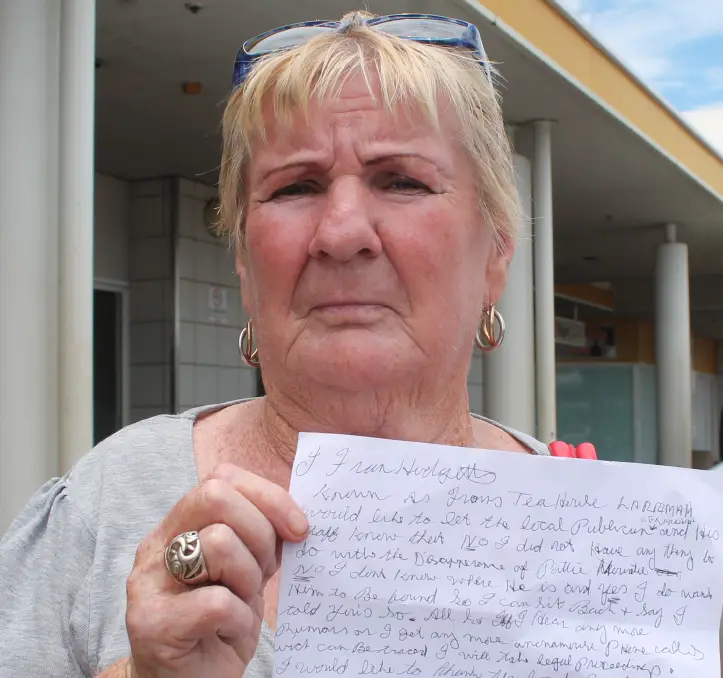 I Fran Hodgetts
Known as Frans Tea House LARRIMAH
Would like to let the local Publican and His
Staff know that NO I did not Have any thing to
do with the Disapperence of Pattie
NO I dont know where He is and yes I do want
Him to Be found So I can sit Back + Say I
told you's so. All so If I Hear any more
Rumors or I get any more phone calls
wich can Be traced I will take legal proceedings.
I would like to thank the